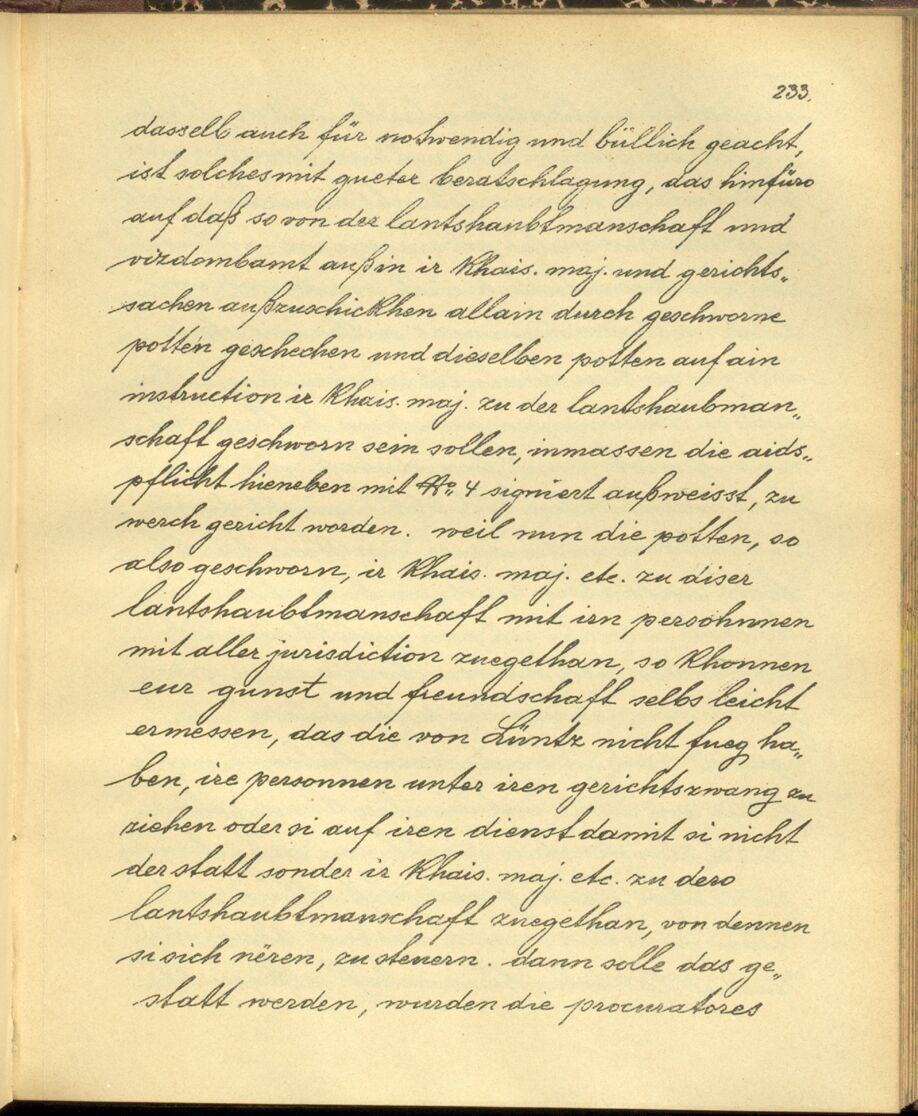 233.
dasselb auch für notwendig und büllich geacht,
ist solches mit gueter beratschlagung, das hinfüro
auf daß so von der lantshaubtmanschaft und
vizdombamt außin ir Khais. maj. und gerichts„
sachen außzuschickhen allain durch geschworne
potten geschechen und dieselben potten auf ain
instruction ir Khais. maj. zu der lantshaubman„
schaft geschworn sein sollen, inmassen die aids„
pflicht hieneben mit No„ 4 signiert außweisst, zu
werch gericht worden. weil nun die potten, so
also geschworn, ir Khais. maj. etc. zu diser
lantshaubtmanschaft mit irn persohnnen
mit aller jurisdiction zuegethan, so Khonnen
eur gunst und freundschaft selbs leicht
ermessen, das die von Lüntz nicht fueg ha„
ben, ire personnen unter iren gerichtszwang zu
ziehen oder si auf iren dienst damit si nicht
der statt sonder ir Khais. maj. etc. zu dero
lantshaubtmanschaft zuegethan, von dennen
si sich nëren, zu steuern. dann solle das ge„
statt werden, wurden die procuratores